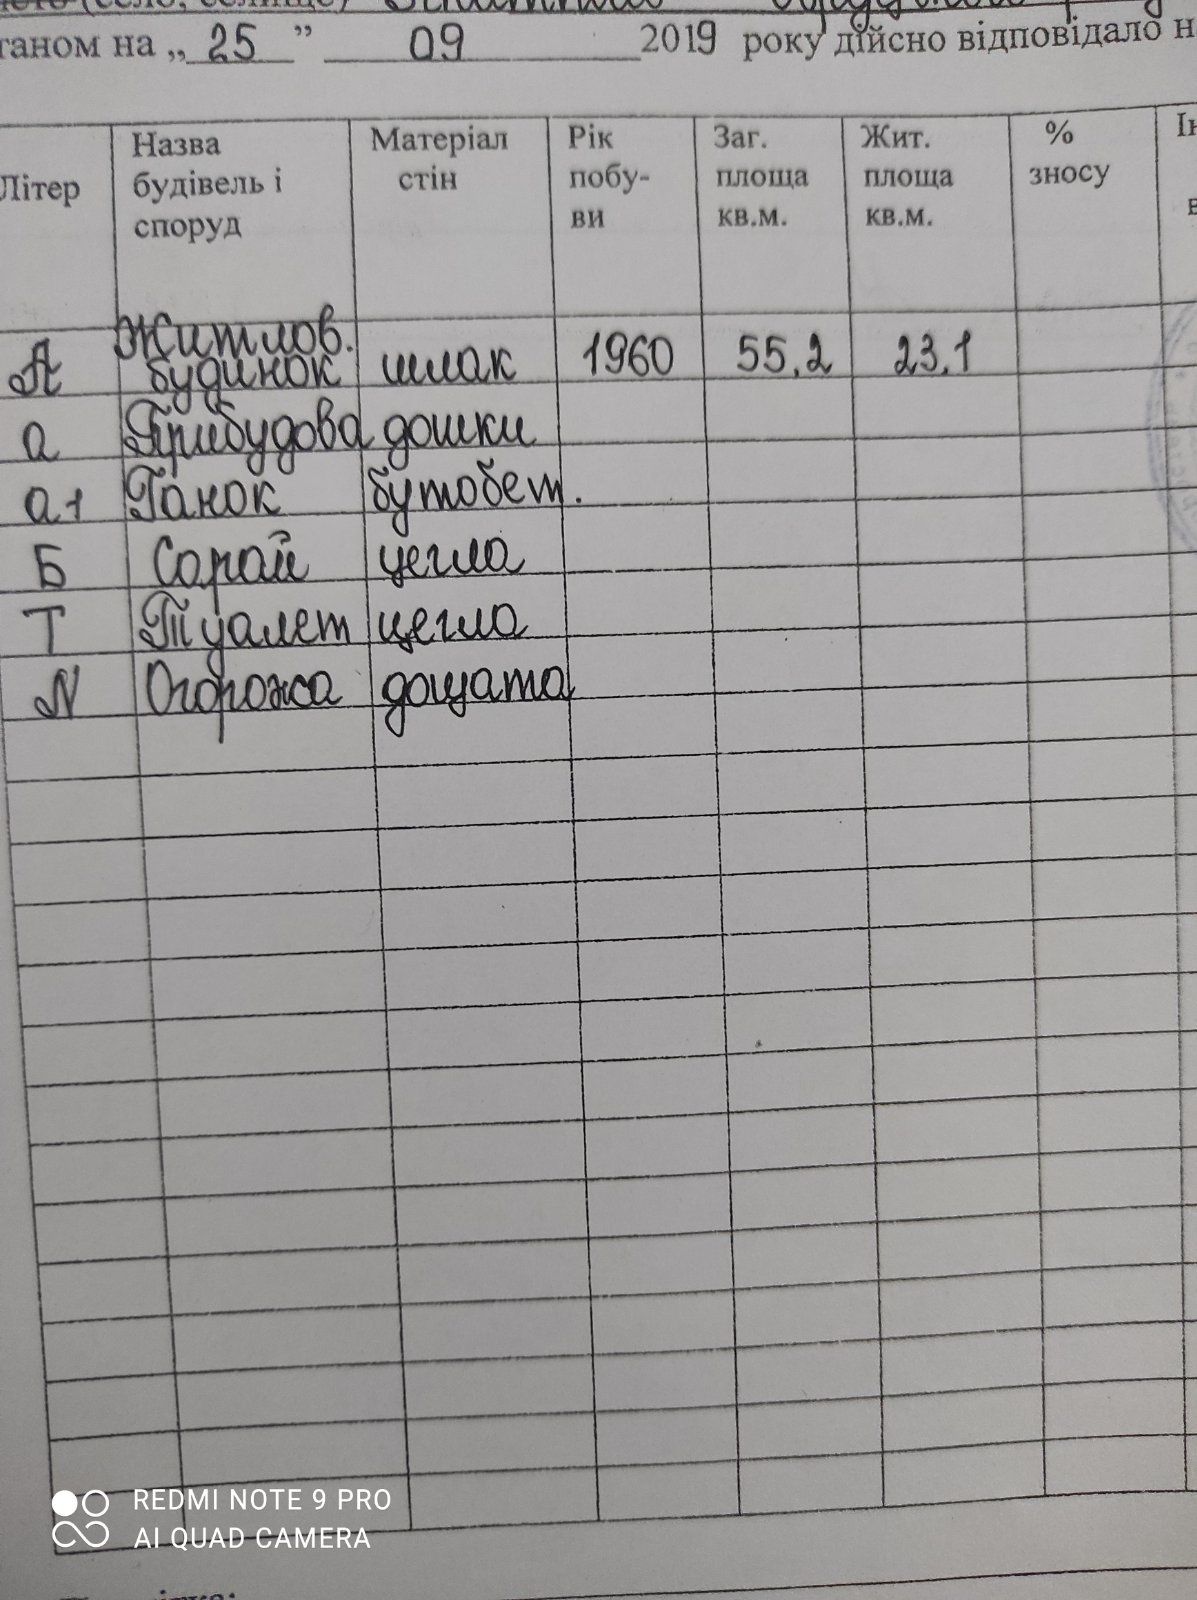 таном на „ 25 ” 09 2019 року дійсно відповідало н
Літер Назва будівель і споруд Матеріал стін Рік побу- ви Заг. площа кв.м. Жит. площа кв.м. % зносу
А Житлов. будинок шлак 1960 55,2 23,1
а Прибудова дошки
а1 Ганок бутобет.
Б Сарай цегла
Т Туалет цегла
N Огорожа дощата
REDMI NOTE 9 PRO
AI QUAD CAMERA